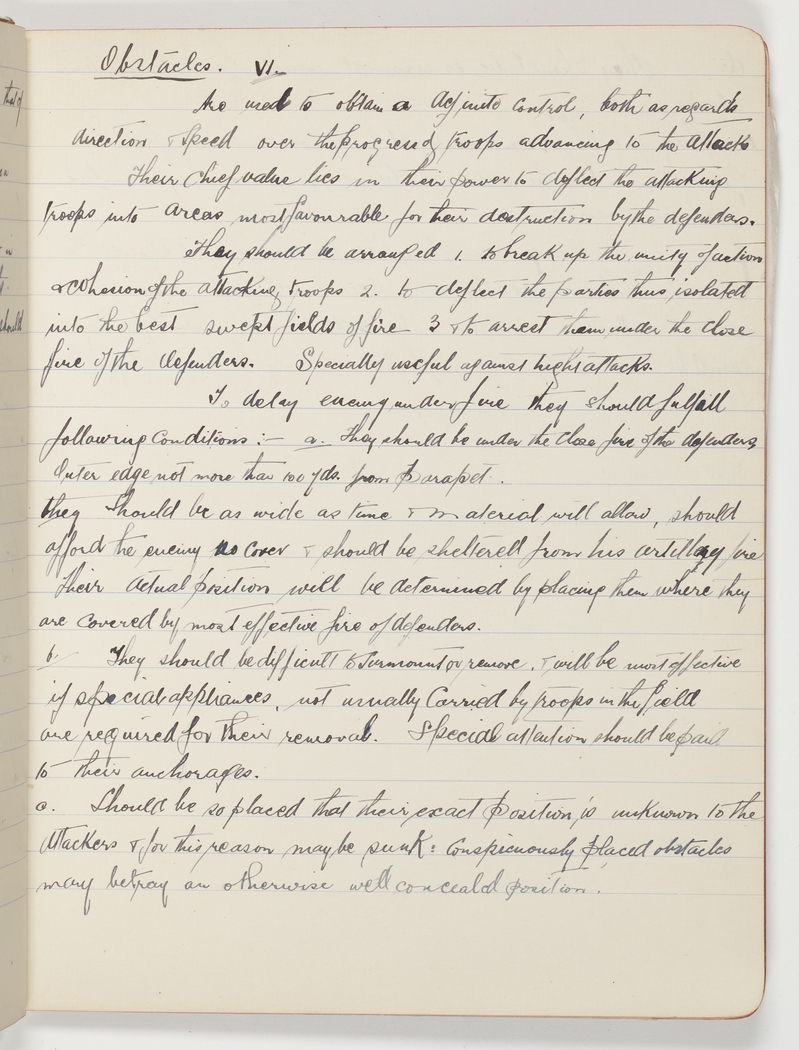 Obstacles. VI.
Are used to obtain a definite control, both as regards
direction & speed over the progress of troops advancing to the attack
Their chief value lies in their power to deflect the attacking
troops into areas most favourable for their destruction by the defenders.
They should be arranged 1. to break up the unity of action
& cohesion of the attacking troops 2. to deflect the parties thus isolated
into the best swept fields of fire 3 & to arrest them under the close
fire of the defenders. Specially useful against night attacks.
To delay enemy under fire they should fulfill
following conditions :- a. They should be under the close fire of the defenders,
Outer edge not more than 100 yds. from parapet.
they should be as wide as time & material will allow, should
afford the enemy no cover & should be sheltered from his artillery fire
Their actual position will be determined by placing them where they
are covered by most effective fire of defenders.
b. They should be difficult to surmount or remove. & will be most effective
if special appliances, not usually carried by troops in the field
are required for their removal. Special attention should be paid
to their anchorages.
c. Should be so placed that their exact position is unknown to the
attackers & for this reason may be sunk: conspicuously placed obstacles
may betray an otherwise well conceald position.
that of
should